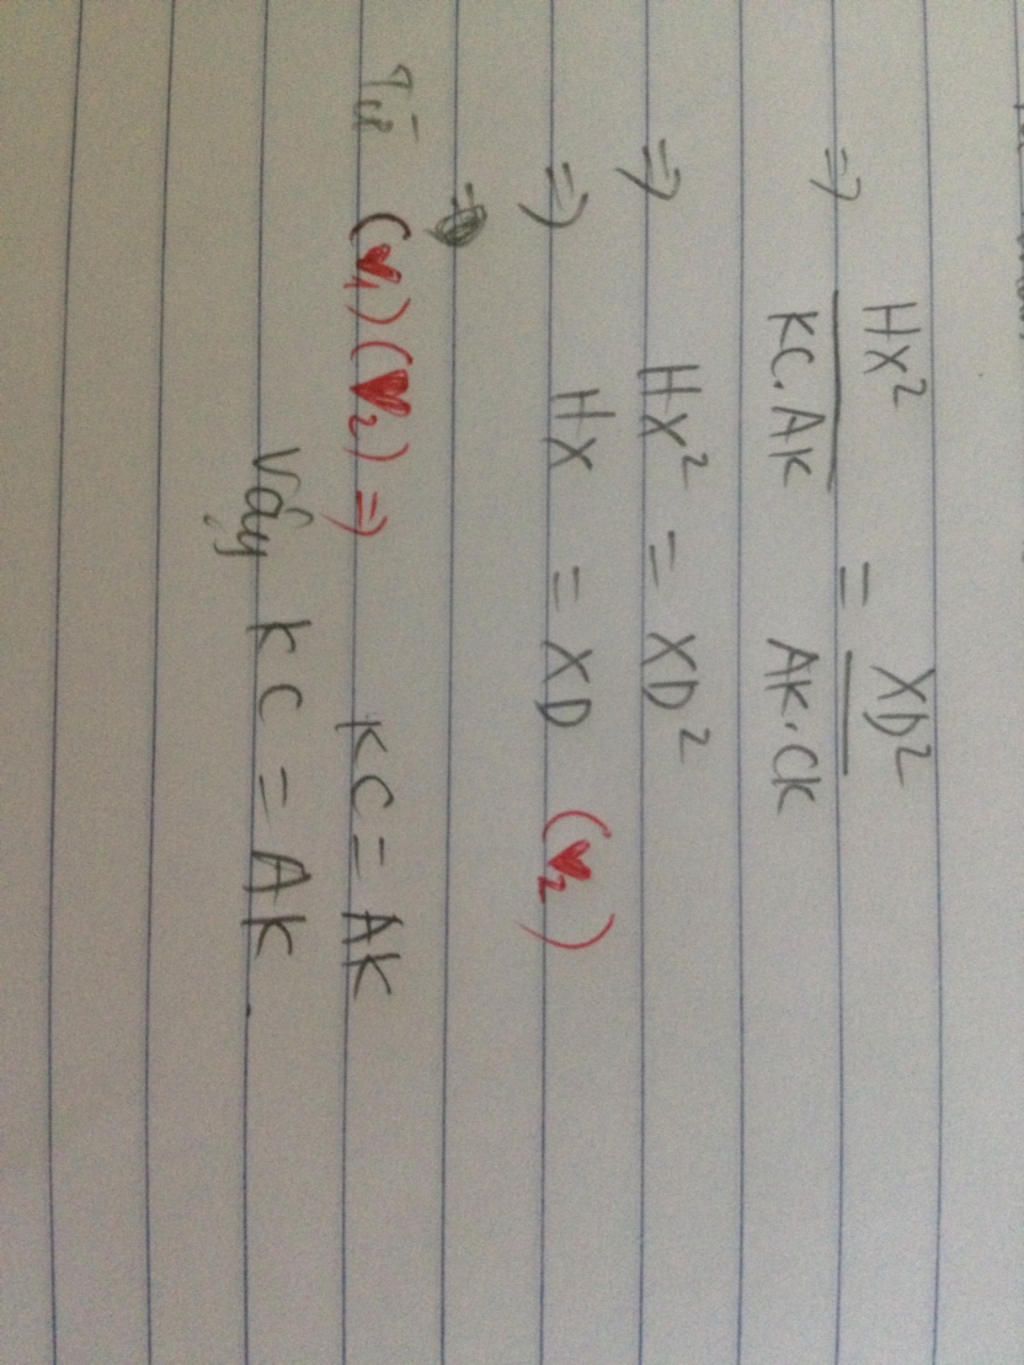 ⇒ HX² / KC.AK = XD² / AK.CK
⇒ HX² = XD²
⇒ HX = XD (♥₂)
Từ (♥₁)(♥₂) ⇒ KC = AK
Vậy KC = AK.